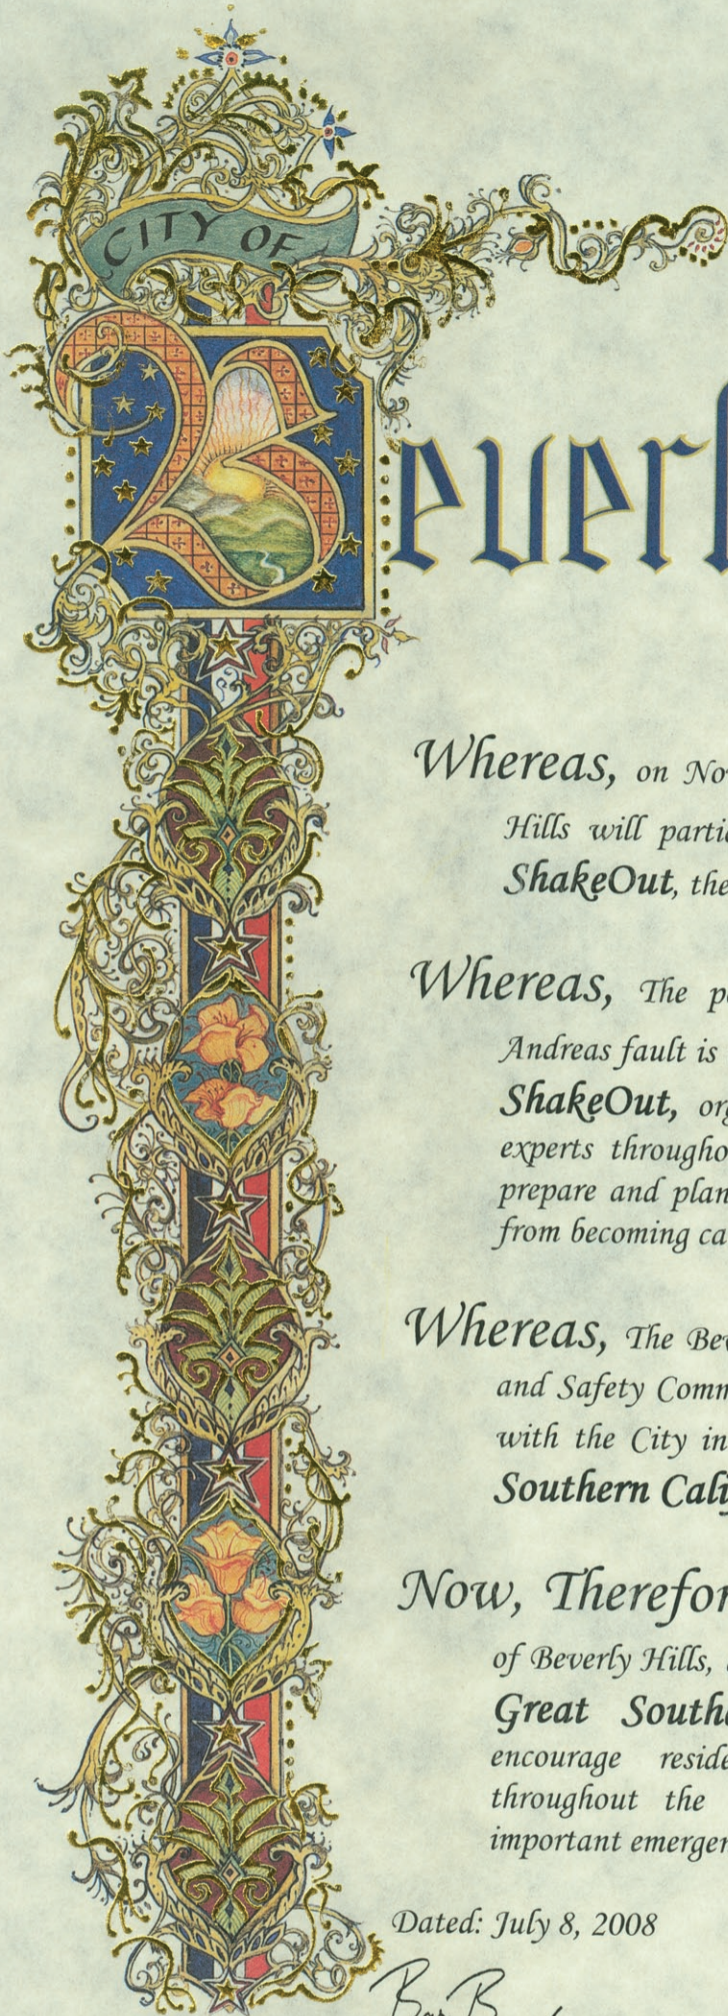 CITY OF
Beverl
Whereas, on No
Hills will parti
ShakeOut, the
Whereas, The p
Andreas fault is
ShakeOut, or
experts througho
prepare and plan
from becoming ca
Whereas, The Bev
and Safety Comm
with the City in
Southern Cali
Now, Therefor
of Beverly Hills,
Great South
encourage reside
throughout the
important emerge
Dated: July 8, 2008